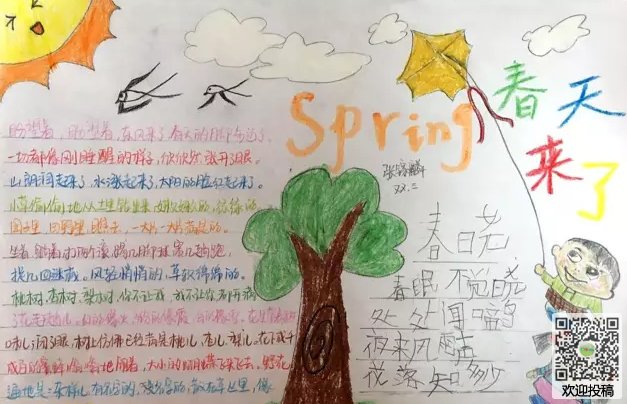 Spring
春天
来了
盼望着，盼望着，东风来了，春天的脚步近了。
一切都像刚睡醒的样子，欣欣然张开了眼。
山朗润起来了，水涨起来了，太阳的脸红起来了。
小草偷偷地从土里钻出来，嫩嫩的，绿绿的。
园子里，田野里，瞧去，一大片一大片满是的。
坐着，躺着，打两个滚，踢几脚球，赛几趟跑，
捉几回迷藏。风轻悄悄的，草软绵绵的。
桃树、杏树、梨树，你不让我，我不让你，都开满
了花赶趟儿。红的像火，粉的像霞，白的像雪。花里带着甜
味儿，闭了眼，树上仿佛已经满是桃儿、杏儿、梨儿。花下成千
成百的蜜蜂嗡嗡地闹着，大小的蝴蝶飞来飞去。野花
遍地是：杂样儿，有名字的，没名字的，散在草丛里，像
春晓
春眠不觉晓
处处闻啼鸟
夜来风雨声
花落知多少
欢迎投稿